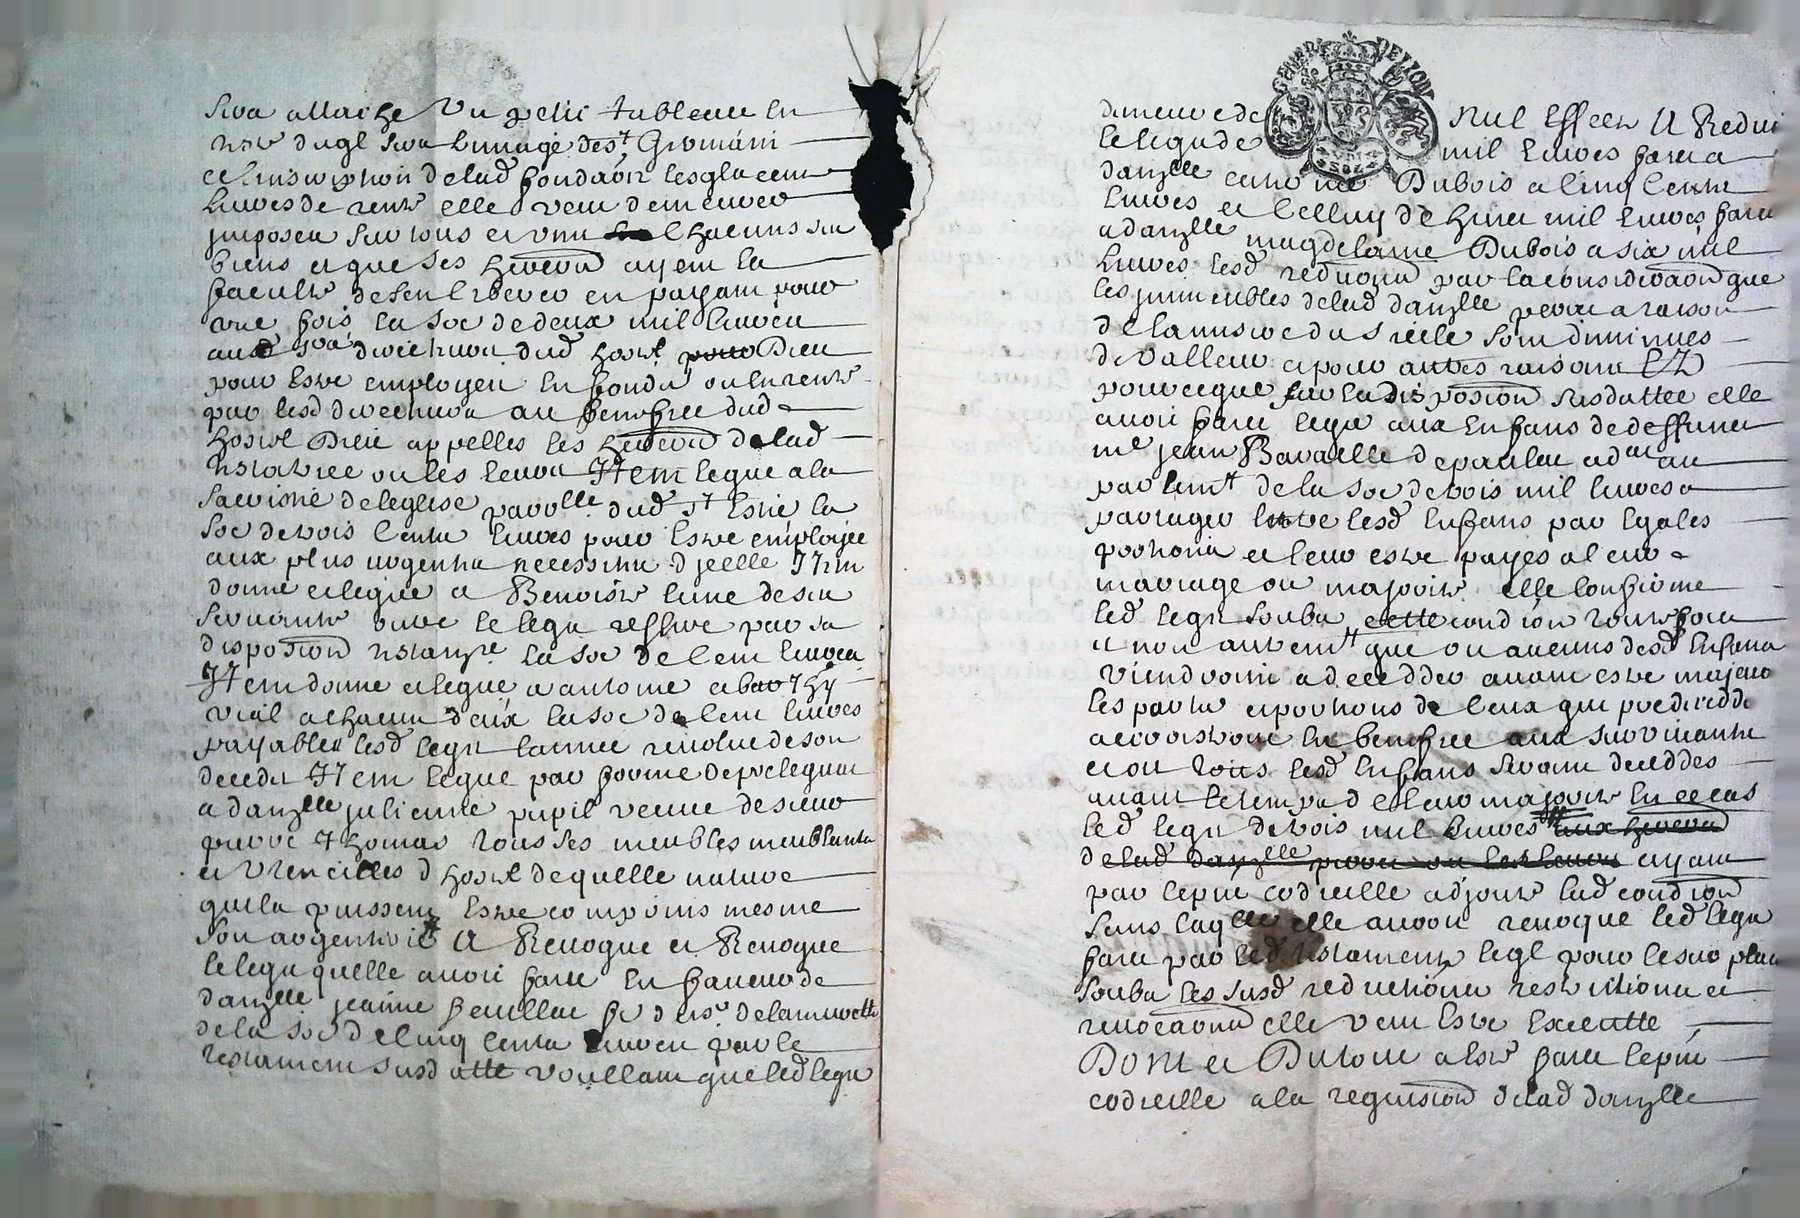 sera attaché un petit tableau en
 sera limage de st Germain
et linscription delad fondaon lesqls cent
livres de rente elle veut demeurer
imposée sur tous et un chacuns ses
biens et que ses hereers ayent la
faculté de sen liberer en payant pour
une fois la soe de deux mil livres
aud srs directeurs dud hostel Dieu
pour estre employée en fonds ou en rente
par lesd directeurs au benefice dud
hostel Dieu appelles les hereers delad
testatrice ou les leurs Item legue a la
sacristie de leglise parolle dud st Esne la
soe de trois cents livres pour estre employée
aux plus urgentes necessités djcelle Item
donne et legue a Benoiste lune de ses
servantes outre le legs reservé par sa
disposion testamre la soe de cent livres
Item donne et legue a antoine et bar thy
vial a chacun deux la soe de cent livres
payables lesd legs lannée revolue de son
deceds Item legue par forme de prelegat
a danzlle julienne pupil veuve de sieur
 thomas tous ses meubles meublants
et utencilles dhostel de quelle nature
quils puissent estre compris mesme
son argenterie A Revoqué et Revoque
le legs quelle avoit fait en faveur de
danzlle jeanne
de la soe de cinq cents livres par le
testament susd atté voullant que led legs
demeure de nul effect A Reduit
le legs de mil livres fait a
danzlle Dubois a cinq cents
livres et celluy de huit mil livres fait
a danzlle magdelaine Dubois a six mil
livres lesd reduons par la consideraon que
les immeubles delad danzlle a raison
de la misere du siecle sont diminues
de valleur et pour autres raisons Et
pource que par la disposion susdattée elle
avoit fait legs aux enfans de deffunct
me jean Bavaille adat au
parlemt de la soe de trois mil livres a
partager entre lesd enfans par egales
portions et leur estre payés a leur
mariage ou majorité elle confirme
led legs soubs cette condion toutesfois
et non autremt que ou aucuns desd enfans
viendroint a decedder avant estre majeurs
les parts et portions de ceux qui predecedde
accroistront en benefice aux survivants
et ou tous lesd enfans seront deceddes
avant le temps de leur majorité en ce cas
led legs de trois mil livres aux hereers
delad danzlle ou les leurs ayant
par le pnt codicille adjouté lad condion
sans laqlle elle auroit revoqué led legs
fait par led testament leql pour le surplus
soubs les susd reductions restrictions et
revocaons elle veut estre executté
Dont et Du tout a esté fait le pnt
codicille a la requision delad danzlle